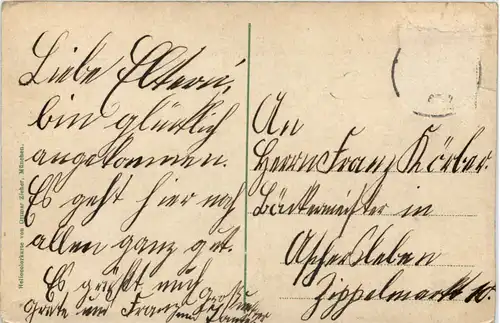 Liebe Eltern,
bin glücklich
angekommen.
Es geht hier noch
allen ganz gut.
Es grüßt euch
Grete und Franz
Großmutter
und
An
Herrn Franz Körber
Bäckermeister in
Aschersleben
Zippelmarkt 10.
Heliocolorkarte von Ottmar Zieher, München.